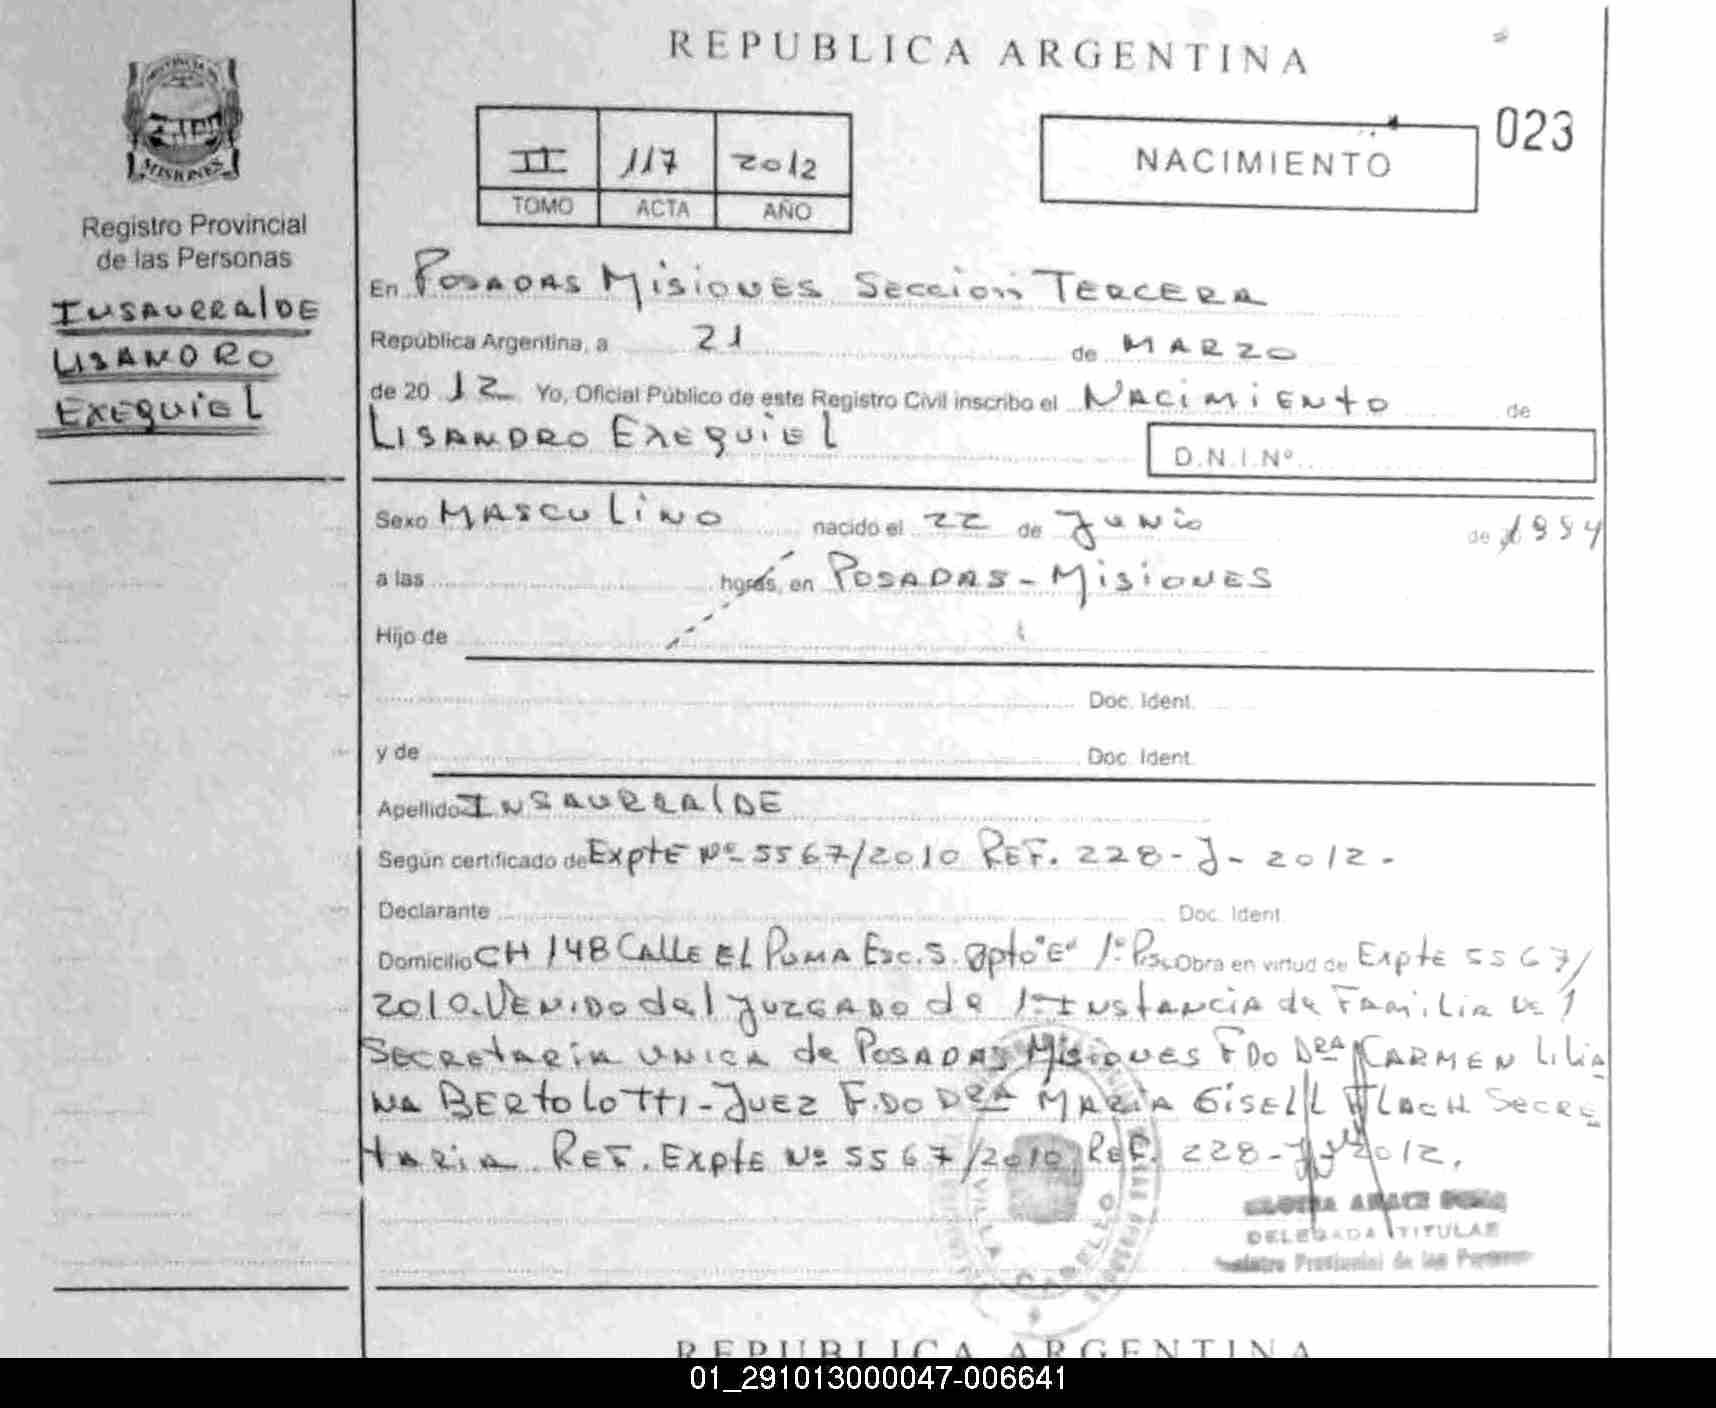 REPUBLICA ARGENTINA
023
II 117 2012
TOMO ACTA AÑO
NACIMIENTO
MISIONES
Registro Provincial
de las Personas
INSAURRALDE
LISANDRO
EXEQUIEL
En POSADAS MISIONES SECCION TERCERA
República Argentina, a 21 de MARZO
de 2012 Yo, Oficial Público de este Registro Civil inscribo el NACIMIENTO de
LISANDRO EXEQUIEL
D.N.I.Nº
Sexo MASCULINO nacido el 22 de JUNIO de 1994
a las horas, en POSADAS - MISIONES
Hijo de
Doc. Ident.
y de Doc. Ident.
Apellido INSAURRALDE
Según certificado de Expte Nº 5567/2010 REF. 228-J-2012.
Declarante Doc. Ident.
Domicilio CH 148 CALLE EL PUMA Esc. 5. Dpto "E" 1º Obra en virtud de Expte 5567/
2010. VENIDO del JUZGADO de 1ª INSTANCIA de FAMILIA Nº 1
SECRETARIA UNICA de POSADAS MISIONES FDO DRA CARMEN LILIA
NA BERTOLOTTI - JUEZ F.DO DRA MARIA GISELL FLACH SECRE
TARIA REF. EXPTE Nº 5567/2010 REF. 228-J-2012.
VILLA CABELLO
DELEGADA TITULAR
Registro Provincial de las Personas
REPUBLICA ARGENTINA
01_291013000047-006641